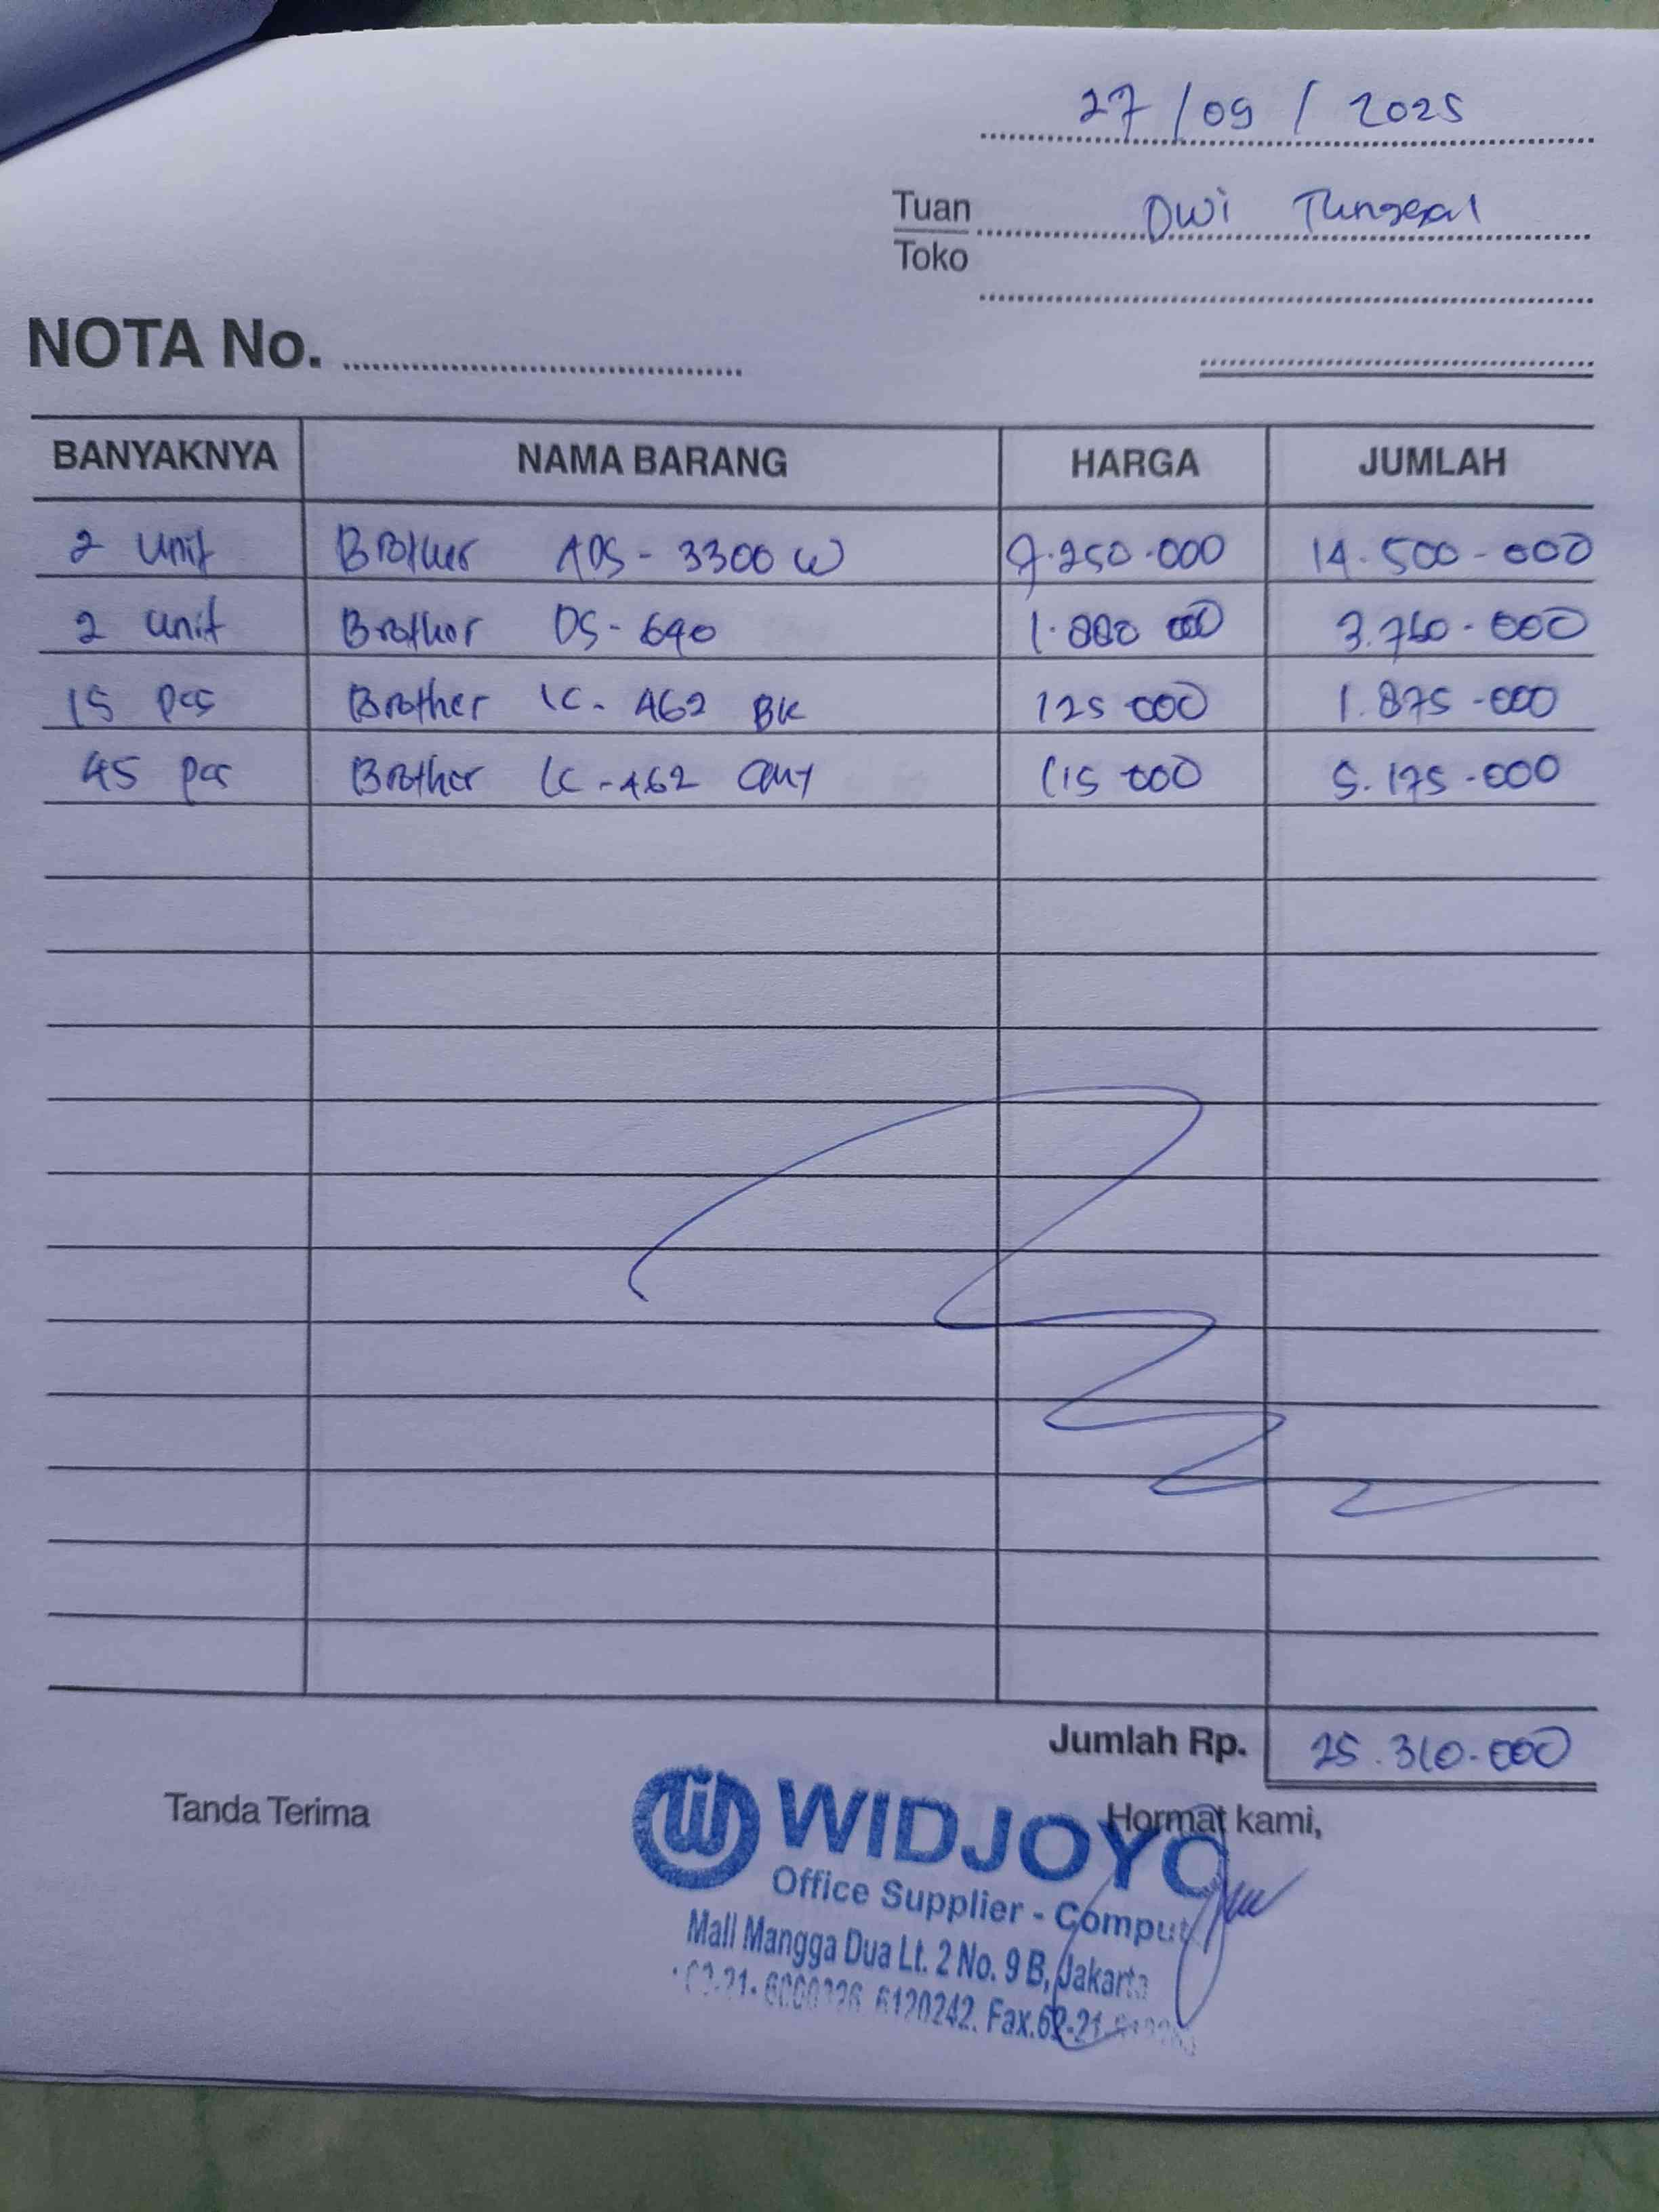 27/09/2025
Tuan Dwi Tunggal
Toko
NOTA No.
BANYAKNYA NAMA BARANG HARGA JUMLAH
2 Unit Brother ADS-3300 W 7.250.000 14.500-000
2 Unit Brother DS-640 1.880 000 3.760-000
15 pcs Brother LC-462 BK 125 000 1.875-000
45 pcs Brother LC-462 CMY 115 000 5.175-000
Jumlah Rp. 25.310-000
Tanda Terima Hormat kami,
WIDJOYO
Office Supplier - Comput
Mall Mangga Dua Lt. 2 No. 9 B, Jakarta
6120242. Fax.62-21